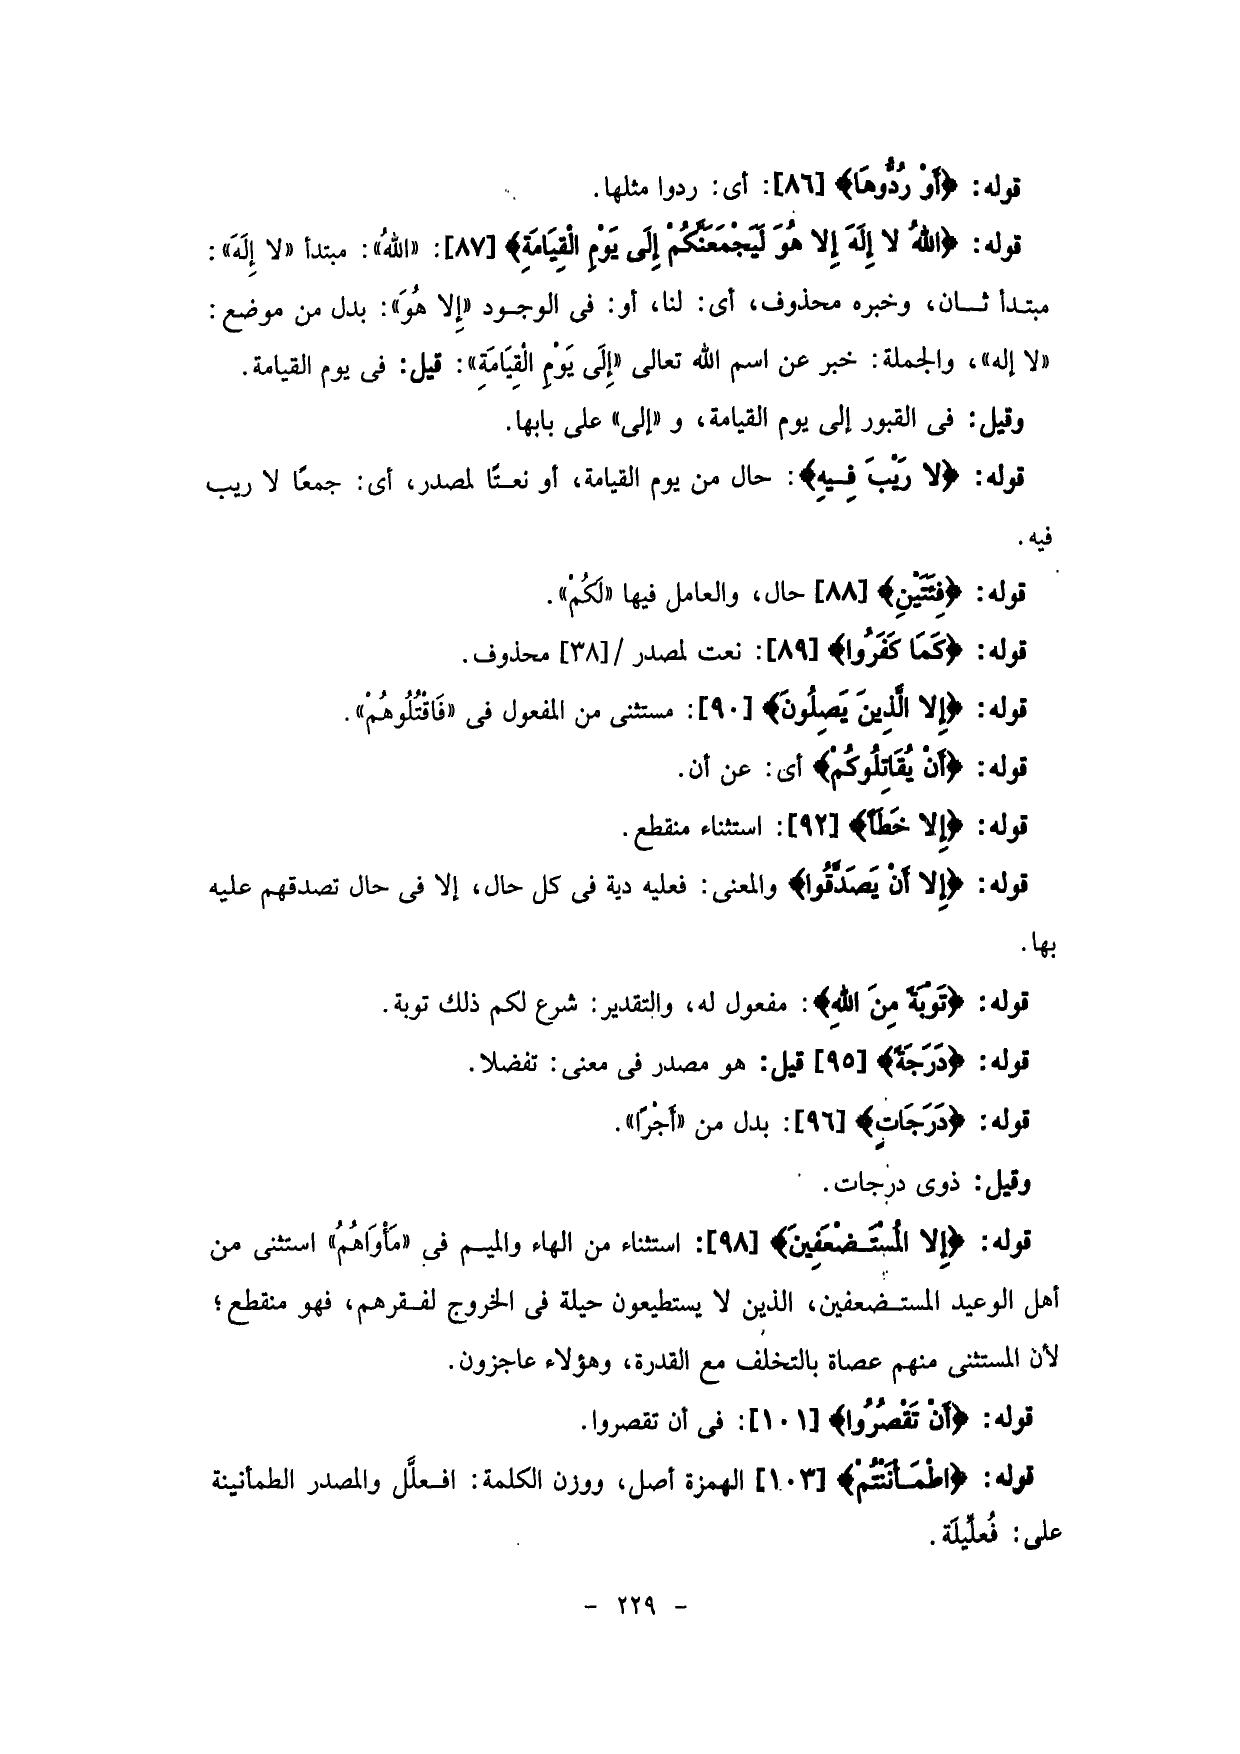 قوله: ﴿أَوْ رُدُّوهَا﴾ [٨٦]: أى: ردوا مثلها.
قوله: ﴿اللهُ لا إِلَهَ إِلا هُوَ لَيَجْمَعَنَّكُمْ إِلَى يَوْمِ الْقِيَامَةِ﴾ [٨٧]: «اللهُ»: مبتدأ «لا إِلَهَ»:
مبتدأ ثان، وخبره محذوف، أى: لنا، أو: فى الوجود «إِلا هُوَ»: بدل من موضع:
«لا إله»، والجملة: خبر عن اسم الله تعالى «إِلَى يَوْمِ الْقِيَامَةِ»: قيل: فى يوم القيامة.
وقيل: فى القبور إلى يوم القيامة، و «إلى» على بابها.
قوله: ﴿لا رَيْبَ فِيهِ﴾: حال من يوم القيامة، أو نعتًا لمصدر، أى: جمعًا لا ريب
فيه.
قوله: ﴿فِئَتَيْنِ﴾ [٨٨] حال، والعامل فيها «لَكُمْ».
قوله: ﴿كَمَا كَفَرُوا﴾ [٨٩]: نعت لمصدر /[٣٨] محذوف.
قوله: ﴿إِلا الَّذِينَ يَصِلُونَ﴾ [٩٠]: مستثنى من المفعول فى «فَاقْتُلُوهُمْ».
قوله: ﴿أَنْ يُقَاتِلُوكُمْ﴾ أى: عن أن.
قوله: ﴿إِلا خَطَأً﴾ [٩٢]: استثناء منقطع.
قوله: ﴿إِلا أَنْ يَصَدَّقُوا﴾ والمعنى: فعليه دية فى كل حال، إلا فى حال تصدقهم عليه
بها.
قوله: ﴿تَوْبَةً مِنَ اللهِ﴾: مفعول له، والتقدير: شرع لكم ذلك توبة.
قوله: ﴿دَرَجَةً﴾ [٩٥] قيل: هو مصدر فى معنى: تفضلا.
قوله: ﴿دَرَجَاتٍ﴾ [٩٦]: بدل من «أَجْرًا».
وقيل: ذوى درجات.
قوله: ﴿إِلا الْمُسْتَضْعَفِينَ﴾ [٩٨]: استثناء من الهاء والميم فى «مَأْوَاهُمُ» استثنى من
أهل الوعيد المستضعفين، الذين لا يستطيعون حيلة فى الخروج لفقرهم، فهو منقطع؛
لأن المستثنى منهم عصاة بالتخلف مع القدرة، وهؤلاء عاجزون.
قوله: ﴿أَنْ تَقْصُرُوا﴾ [١٠١]: فى أن تقصروا.
قوله: ﴿اطْمَأْنَنْتُمْ﴾ [١٠٣] الهمزة أصل، ووزن الكلمة: افعللَّ والمصدر الطمأنينة
على: فُعلِّيلَة.
- ٢٢٩ -